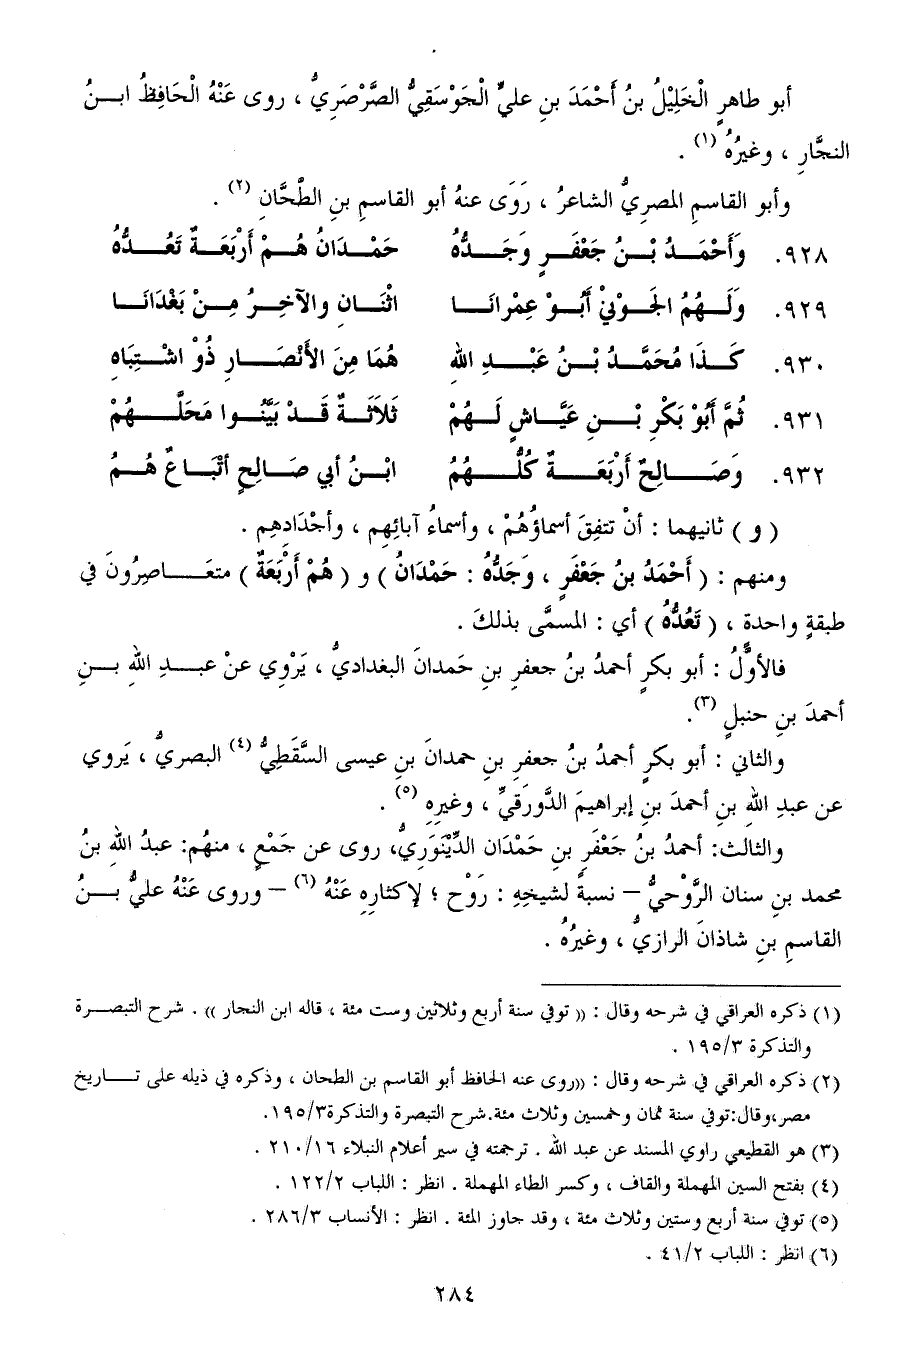 أبو طاهرٍ الْخَلِيْلُ بنُ أَحْمَدَ بنِ عليٍّ الْجَوْسَقِيُّ الصَّرْصَرِيُّ ، روى عَنْهُ الْحَافِظُ ابــنُ
النجَّارِ ، وغيرُهُ (١) .
وأبو القاسمِ المصريُّ الشاعرُ ، رَوَى عنهُ أبو القاسمِ بنِ الطَّحَّانِ (٢) .
٩٢٨. وَأَحْمَـدُ بْـنُ جَعْفَـرٍ وَجَـدُّهُ حَمْـدَانُ هُـمْ أَرْبَعَـةٌ تَعُـدُّهُ
٩٢٩. وَلَـهُمُ الجَوْنِيْ أَبُـوْ عِمْرانَـا اثْنَـانِ والآخِـرُ مِـنْ بَغْدَانَـا
٩٣٠. كَـذَا مُحَمَّـدُ بْـنُ عَبْـدِ اللهِ هُمَا مِنَ الأَنْصَـارِ ذُو اشْـتِبَاهِ
٩٣١. ثُمَّ أَبُوْ بَكْرِ بْـنِ عَيَّاشٍ لَـهُمْ ثَلاَثَـةٌ قَـدْ بَيَّنُـوا مَحَلَّـهُمْ
٩٣٢. وَصَـالِحٌ أَرْبَعَـةٌ كُلُّـهُمُ ابْـنُ أَبي صَـالِحٍ أتْبَـاعٌ هُـمُ
( و ) ثانيهما : أنْ تتفِقَ أسماؤُهُمْ ، وأسماءُ آبائِهِم ، وأجْدَادِهِم .
ومنهم : ( أَحْمَدُ بنُ جَعْفَرٍ ، وَجَدُّهُ : حَمْدَانُ ) و ( هُمْ أَرْبَعَةٌ ) متعَـاصِرُونَ في
طبقةٍ واحدة ، ( تَعُدُّهُ ) أي : المسمَّى بذلكَ .
فالأوَّلُ : أبو بكرٍ أحمدُ بنُ جعفرِ بنِ حَمدانَ البغداديُّ ، يَرْوِي عنْ عبــدِ اللهِ بــنِ
أحمدَ بنِ حنبلٍ (٣).
والثاني : أبو بكرٍ أحمدُ بنُ جعفرِ بنِ حمدانَ بنِ عيسى السَّقَطِيُّ (٤) البصريُّ ، يَروي
عن عبدِ اللهِ بنِ أحمدَ بنِ إبراهيمَ الدَّورَقيِّ ، وغيرِهِ (٥) .
والثالث: أحمدُ بنُ جَعْفَرِ بنِ حَمْدَان الدِّيْنَوَرِيُّ، روى عن جَمْعٍ ، منهُم: عبدُ اللهِ بنُ
محمد بنِ سنان الرَّوْحيُّ – نسبةً لشيخِهِ : رَوْح ؛ لإكثارِهِ عَنْهُ (٦) – وروى عَنْهُ عليُّ بــنُ
القاسمِ بنِ شاذانَ الرازيُّ ، وغيرُهُ .
(١) ذكره العراقي في شرحه وقال : « توفي سنة أربع وثلاثين وست مئة ، قاله ابن النجار » . شرح التبصــرة
والتذكرة ١٩٥/٣ .
(٢) ذكره العراقي في شرحه وقال : «روى عنه الحافظ أبو القاسم بن الطحان ، وذكره في ذيله على تــاريخ
مصر،وقال:توفي سنة ثمان وخمسين وثلاث مئة.شرح التبصرة والتذكرة١٩٥/٣.
(٣) هو القطيعي راوي المسند عن عبد الله . ترجمته في سير أعلام النبلاء ٢١٠/١٦ .
(٤) بفتح السين المهملة والقاف ، وكسر الطاء المهملة . انظر : اللباب ١٢٢/٢ .
(٥) توفي سنة أربع وستين وثلاث مئة ، وقد جاوز المئة . انظر : الأنساب ٢٨٦/٣ .
(٦) انظر : اللباب ٤١/٢ .
٢٨٤